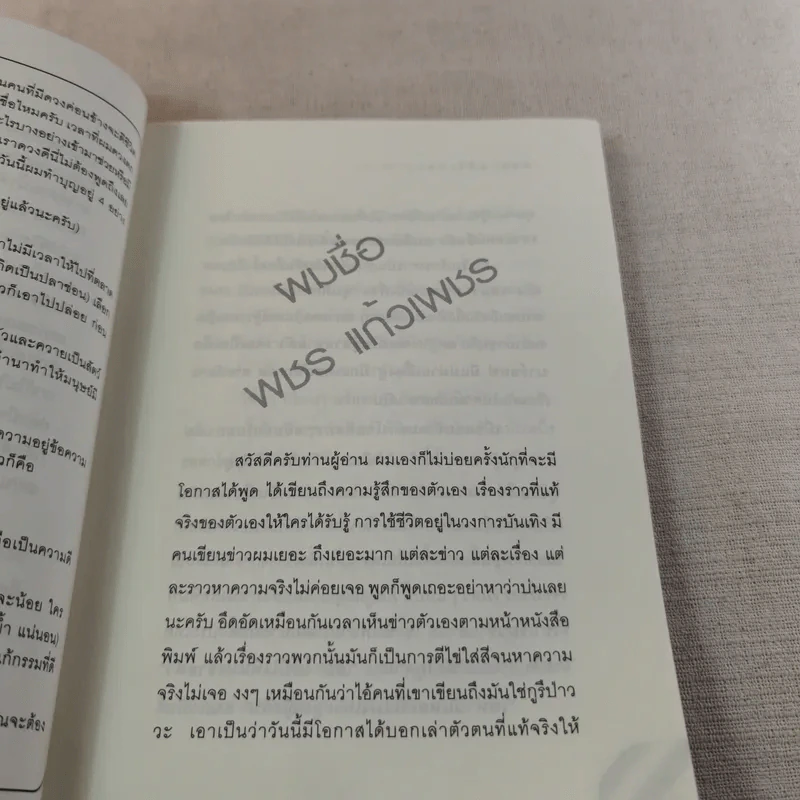 นคนที่มีดวงค่อนข้างจะดี
ชื่อไหมครับ เวลาที่ผมดวง
ะไรบางอย่างเข้ามาช่วย
ราดวงดีนี่ไม่ต้องพูดถึงเลย
วันนี้ผมทำบุญอยู่ 4 อย่าง
ยู่แล้วนะครับ)
าไม่มีเวลาให้ไปที่ตลาด
กิดเป็นปลาช่อน) เลือก
วก็เอาไปปล่อย ก่อน
ัวและควายเป็นสัตว์
ำนาทำให้มนุษย์มี
ความอยู่ข้อความ
วก็คือ
ือเป็นความดี
จะน้อย ใคร
แน่นอน)
แก้กรรมที่ดี
ณจะต้อง
ผมชื่อ
พชร แก้วเพชร
สวัสดีครับท่านผู้อ่าน ผมเองก็ไม่บ่อยครั้งนักที่จะมี
โอกาสได้พูด ได้เขียนถึงความรู้สึกของตัวเอง เรื่องราวที่แท้
จริงของตัวเองให้ใครได้รับรู้ การใช้ชีวิตอยู่ในวงการบันเทิง มี
คนเขียนข่าวผมเยอะ ถึงเยอะมาก แต่ละข่าว แต่ละเรื่อง แต่
ละราวหาความจริงไม่ค่อยเจอ พูดก็พูดเถอะอย่าหาว่าบ่นเลย
นะครับ อึดอัดเหมือนกันเวลาเห็นข่าวตัวเองตามหน้าหนังสือ
พิมพ์ แล้วเรื่องราวพวกนั้นมันก็เป็นการตีไข่ใส่สีจนหาความ
จริงไม่เจอ งงๆ เหมือนกันว่าไอ้คนที่เขาเขียนถึงมันใช่กูรึป่าว
วะ เอาเป็นว่าวันนี้มีโอกาสได้บอกเล่าตัวตนที่แท้จริงให้